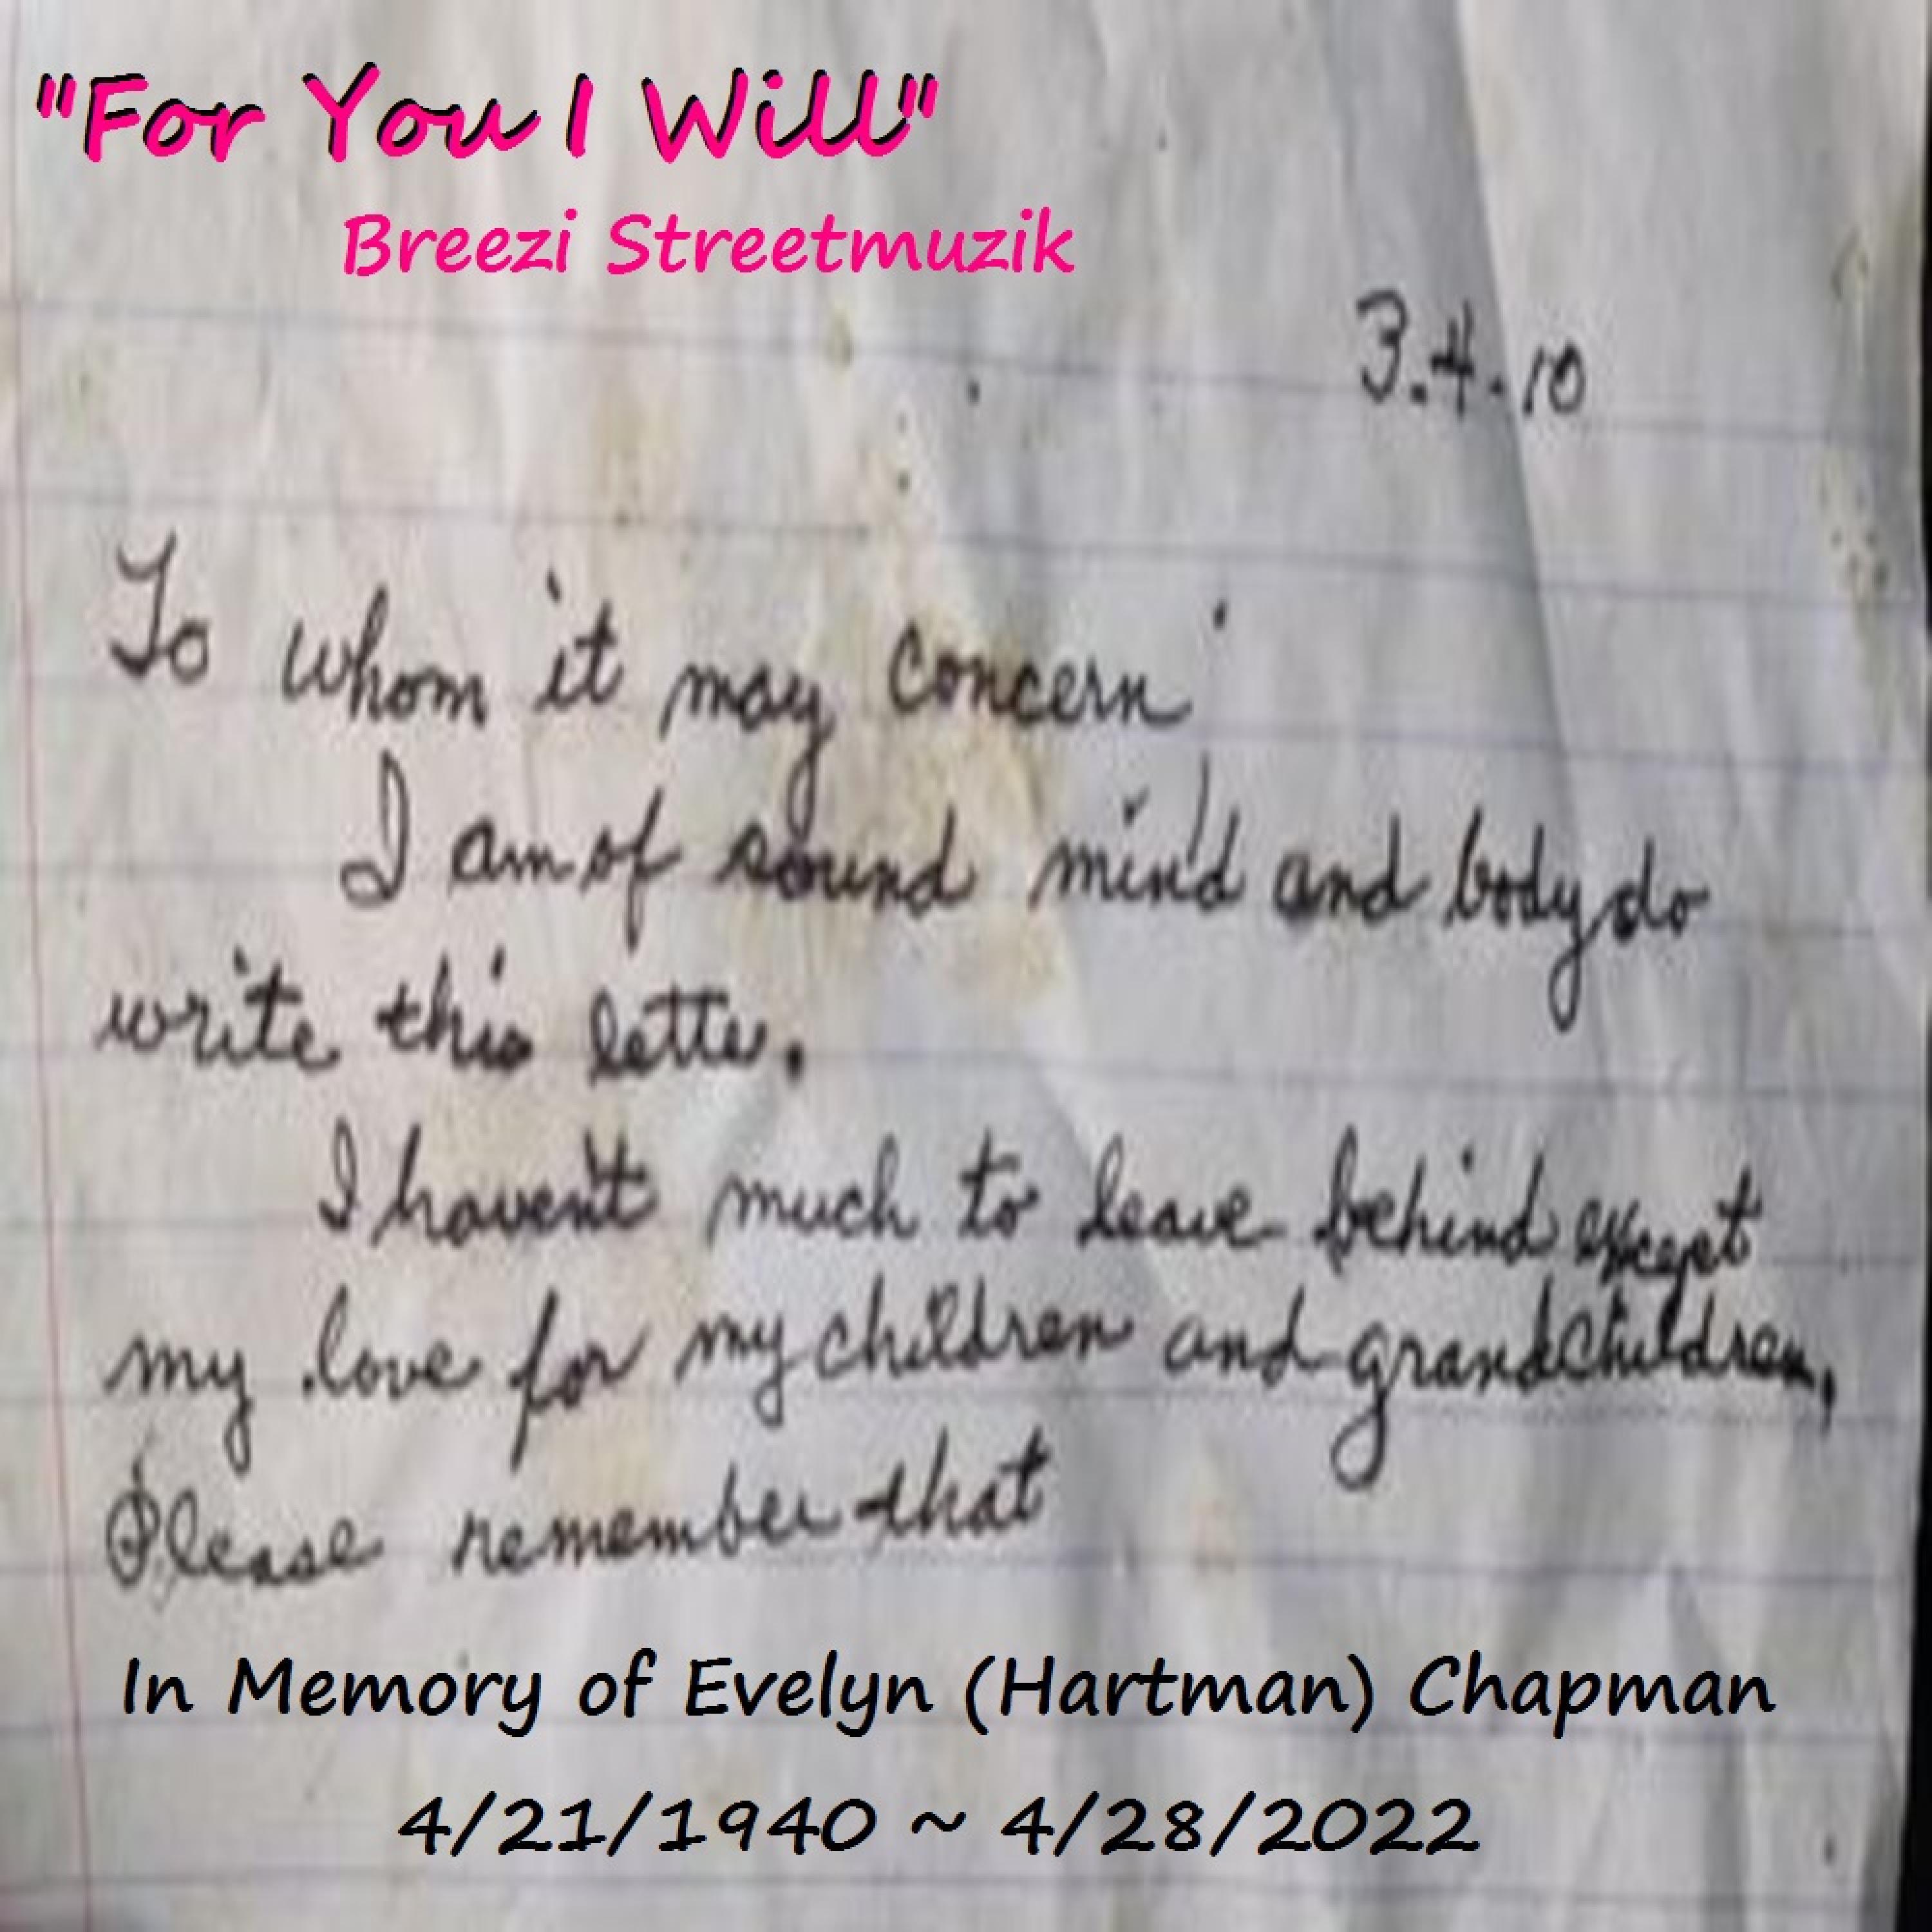 "For You I Will"
Breezi Streetmuzik
3.4.10
To whom it may concern
I am of sound mind and body do
write this letter.
I haven't much to leave behind except
my love for my children and grandchildren,
Please remember that
In Memory of Evelyn (Hartman) Chapman
4/21/1940 ~ 4/28/2022